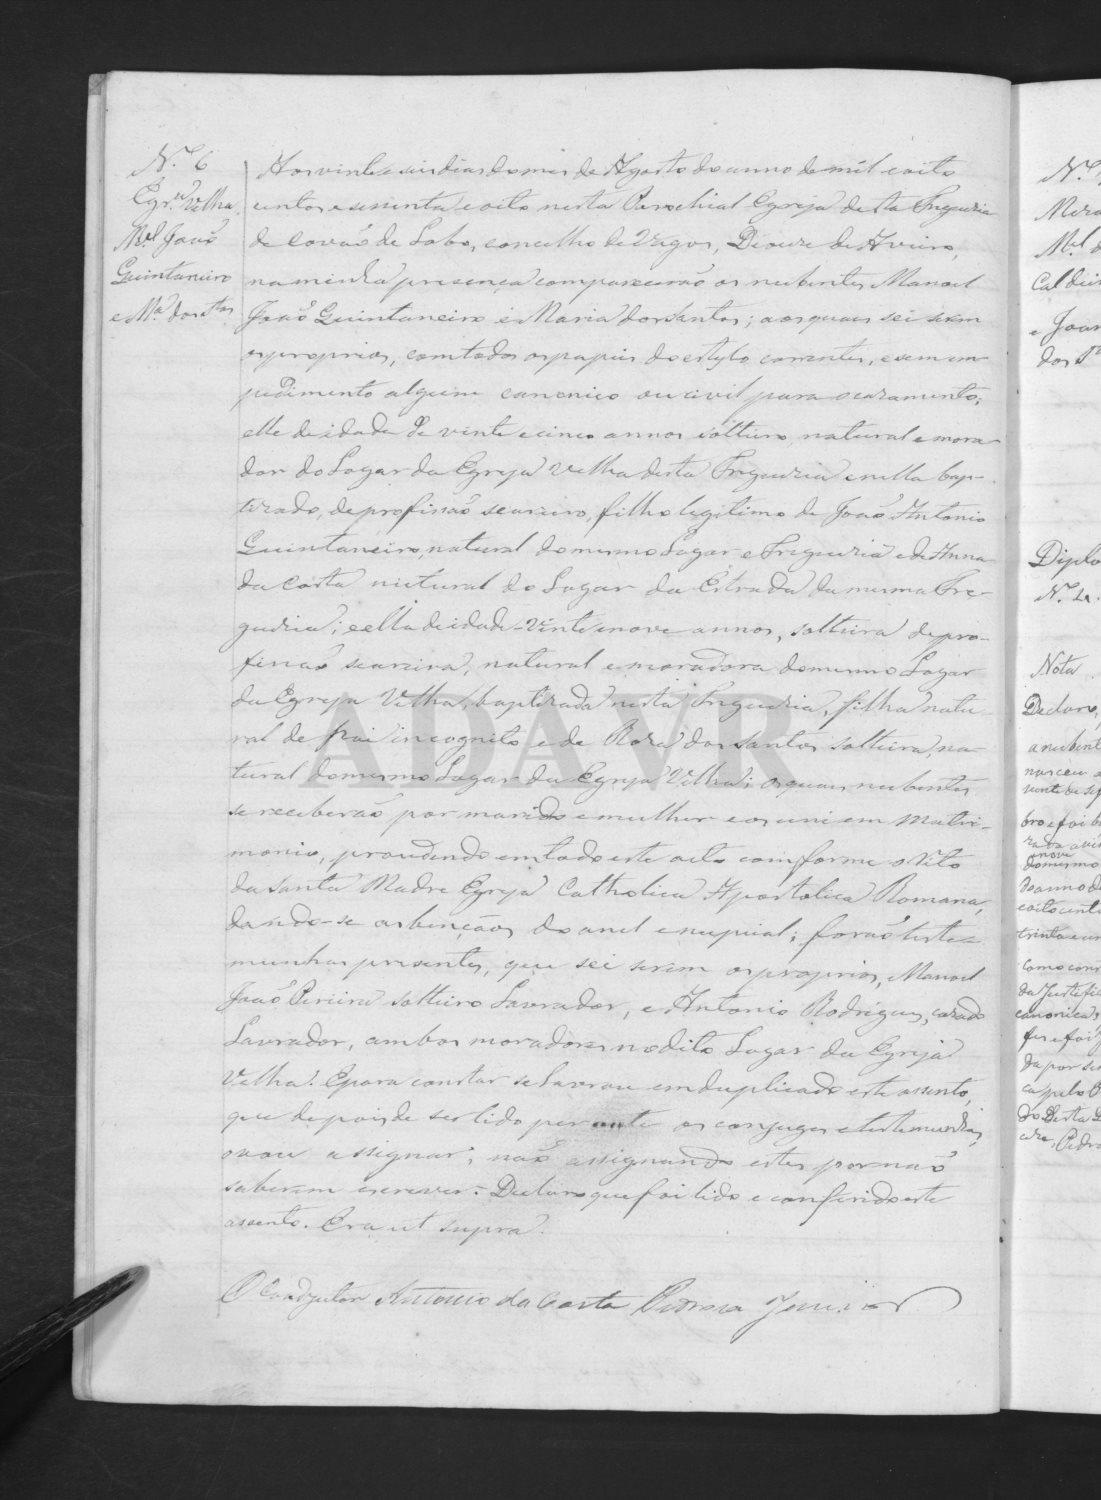 N.º 6
Egr.ª velha
M.el João
Quintaneiro
e M.ª dos S.tos
Aos vinte e seis dias do mes de Agosto do anno de mil e oito
centos e sessenta e oito nesta Parochial Egreja desta Freguezia
de Covão de Lobo, concelho de Vagos, Diocese de Aveiro,
na minha presença comparecerão os nubentes Manoel
João Quintaneiro e Maria dos Santos; aos quaes sei serem
os proprios, com todos os papeis do estylo correntes, e sem im-
pedimento algum canonico ou civil para o casamento;
elle de idade de vinte e cinco annos solteiro, natural e mora-
dor do Lugar da Egreja Velha desta Freguezia e nella bap-
tizado, de profissão seareiro, filho legitimo de João Antonio
Quintaneiro, natural do mesmo Lugar e Freguezia e de Anna
da Costa natural do Lugar da Estrada da mesma Fre-
guezia; e ella de idade - vinte e nove annos, solteira de pro-
fissão seareira, natural e moradora do mesmo Lugar
da Egreja Velha, baptizada nesta Freguezia, filha natu-
ral de pai incognito e de Roza dos Santos solteira, na-
tural do mesmo Lugar da Egreja Velha; os quaes nubentes
se receberão por marido e mulher e os uni em Matri-
monio, procedendo em todo este acto comforme o rito
da Santa Madre Egreja Catholica Apostolica Romana,
dando-se as bençãos do anel e nupcial; forão teste-
munhas presentes, que sei serem os proprios, Manoel
João Pereira solteiro Lavrador, e Antonio Rodrigues, casado
Lavrador, ambos moradores no dito Lugar da Egreja
Velha. E para constar se lavrou em duplicado este assento,
que depois de ser lido perante os conjuges e testemunhas,
vou assignar, não assignando estes por não
saberem escrever. Declaro que foi lido e conferido este
assento. Era ut supra.
O Coadjutor Antonio da Costa Pedrosa Junior
ADAVR
N.º
M.el
e Joan
dos
Diplo
N.º
Nota
Declaro,
a nubent
nasceu a
vinte de se
bro e foi b
nove
do mesmo
do anno d
e oito cent
trinta e u
como con
da Justifi
canonica,
fes e foi j
da por se